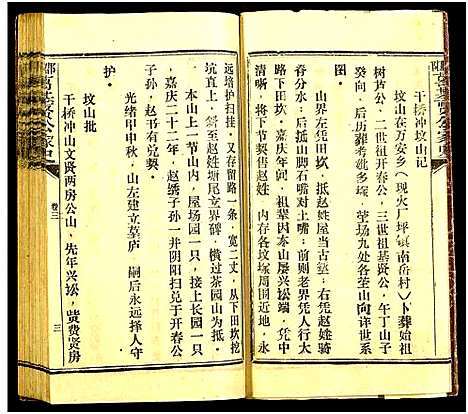 干桥冲坟山记
坟山在万安乡（现火厂坪镇南岳村）卜葬始祖
树芳公，二世祖开春公，三世祖基贤公，午丁山子
癸向，后历葬考妣多塚，茔场九处各茔山向详
图。
山界左凭田坎，右抵赵姓屋当古窖；右凭赵姓骑
路下田坎，后抵山脚石嘴对上嘴；前则老界凭人行大
路下田坎，嘉庆年间，祖辈因本山屡兴讼端，凭中
清晰，将讼端之地售契赵姓，内存各坟塚周围近地，永
远培护扫挂，又存留路一条，宽二丈，从下田坎挖
坑直上，斜至赵姓塘尾立界碑，横过茶园一只
本山上一节山内，屋场园一只，接上长园一只
，嘉庆二十二年，赵绣子孙一并阴阳扫兑于开春公
子孙，赵书有兑契。
光绪甲申秋，山左建立墓庐 嗣后永远择人守
护。
坟山批
干桥冲山文贤两房公山，先年兴讼，赀费贤房
卷三
三